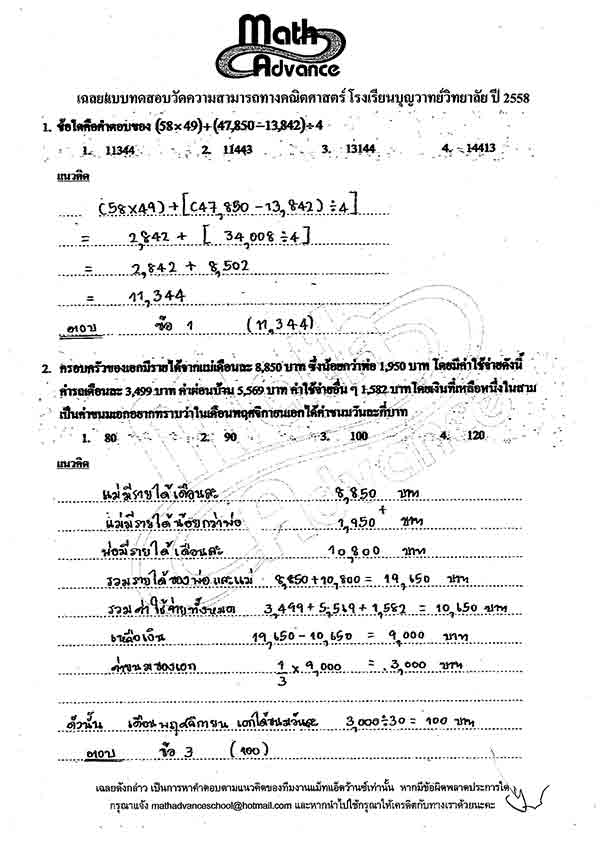 Math
Advance
เฉลยแบบทดสอบวัดความสามารถทางคณิตศาสตร์ โรงเรียนบุญวาทย์วิทยาลัย ปี 2558
1. ข้อใดคือคำตอบของ (58×49)+(47,850–13,842)÷4
1. 11344 2. 11443 3. 13144 4. 14413
แนวคิด
(58×49)+[(47,850-13,842)÷4]
= 2,842 + [ 34,008÷4]
= 2,842 + 8,502
= 11,344
ตอบ ข้อ 1 (11,344)
2. ครอบครัวของเอกมีรายได้จากแม่เดือนละ 8,850 บาท ซึ่งน้อยกว่าพ่อ 1,950 บาท โดยมีค่าใช้จ่ายดังนี้
ค่ารถเดือนละ 3,499 บาท ค่าผ่อนบ้าน 5,569 บาท ค่าใช้จ่ายอื่น ๆ 1,582 บาทโดยเงินที่เหลือหนึ่งในสาม
เป็นค่าขนมเอกอยากทราบว่าในเดือนพฤศจิกายนเอกได้ค่าขนมวันละกี่บาท
1. 80 2. 90 3. 100 4. 120
แนวคิด
แม่มีรายได้เดือนละ 8,850 บาท
แม่มีรายได้น้อยกว่าพ่อ 1,950 + บาท
พ่อมีรายได้เดือนละ 10,800 บาท
รวมรายได้ของพ่อและแม่ 8,850+10,800 = 19,650 บาท
รวมค่าใช้จ่ายทั้งหมด 3,499+5,569+1,582 = 10,650 บาท
เหลือเงิน 19,650-10,650 = 9,000 บาท
ค่าขนมของเอก 1/3 × 9,000 = 3,000 บาท
ดังนั้น เดือนพฤศจิกายน เอกได้ขนมวันละ 3,000÷30 = 100 บาท
ตอบ ข้อ 3 (100)
เฉลยดังกล่าว เป็นการหาคำตอบตามแนวคิดของทีมงานแม็ทแอ็ดว้านซ์เท่านั้น หากมีข้อผิดพลาดประการใด
กรุณาแจ้ง mathadvanceschool@hotmail.com และหากนำไปใช้กรุณาให้เครดิตกับทางเราด้วยนะคะ